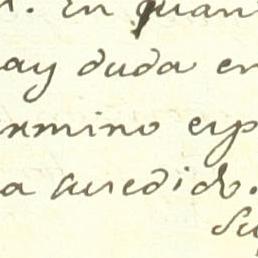 . En quan
ay duda en
ermino esp
a sucedido.
Su